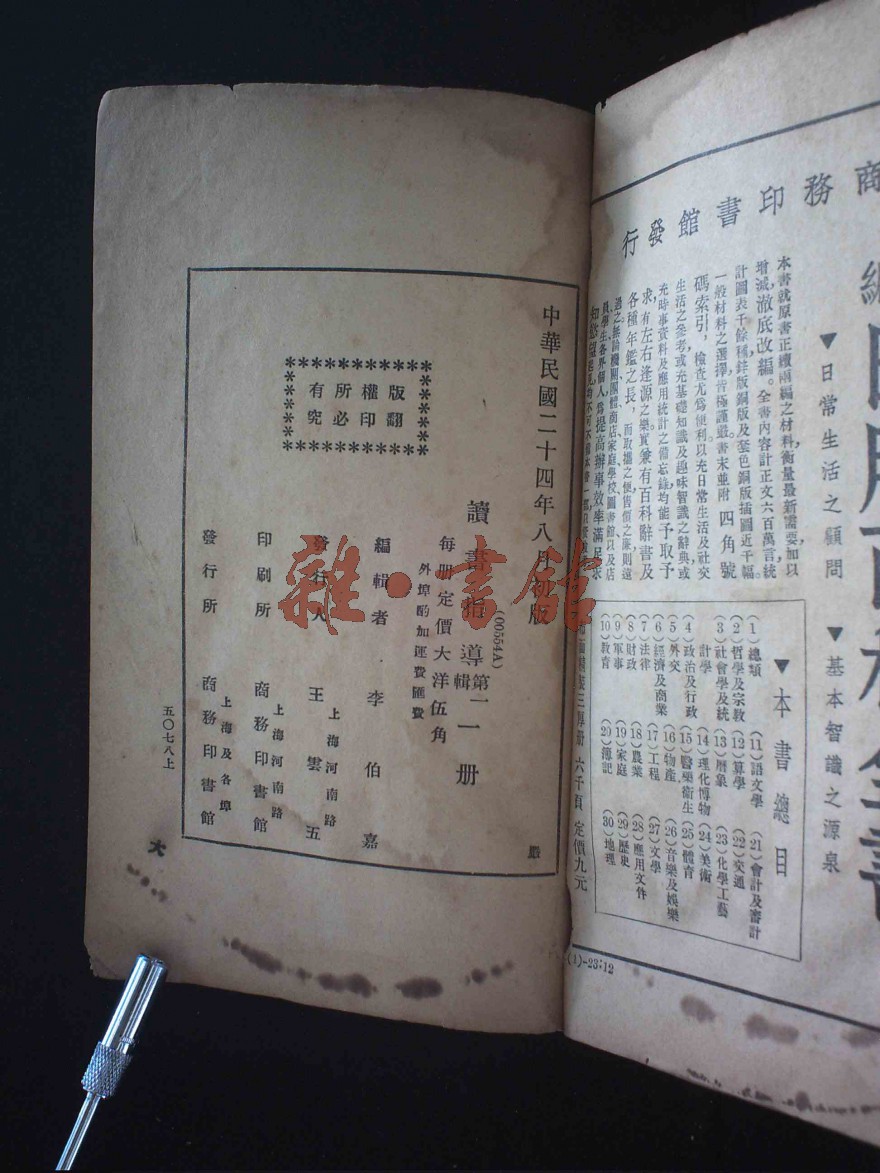 商務印書館發行
▼日常生活之顧問 ▼基本智識之源泉
本書就原書正續兩編之材料衡量最新需要加以
增減澈底改編。全書內容計正文六百萬言統
計圖表千餘種鋅版銅版及套色銅版插圖近千幅
一般材料之選擇皆極謹嚴書末並附四角號
碼索引，檢查尤爲便利以充日常生活及社交
生活之參考或充基礎知識及趣味智識之辭典或
充時事資料及應用統計之備忘錄均能予取予
求，有左右逢源之樂實兼有百科辭書及
各種年鑑之長，而取攜之便售價之廉則遠
過之無論機關團體商店家庭學校圖書館以及店
員學生各界個人爲提高辦事效率滿足求
▼本書總目
(1)總類
(2)哲學及宗教
(3)社會學及統計學
(4)政治及行政
(5)外交
(6)經濟及商業
(7)法律
(8)財政
(9)軍事
(10)教育
(11)語文學
(12)算學
(13)曆象
(14)理化博物
(15)醫藥衛生
(16)物產
(17)工程
(18)農業
(19)家庭
(20)簿記
(21)會計及審計
(22)交通
(23)化學工藝
(24)美術
(25)體育
(26)音樂及娛樂
(27)文學
(28)應用文件
(29)歷史
(30)地理
三厚册 六千頁 定價九元
(1)-23:12
中華民國二十四年八月初版
(00554A)
讀書指導第二輯一册
每册定價大洋伍角
外埠酌加運費匯費
編輯者 李伯嘉
發行人 王雲五
上海河南路
印刷所 商務印書館
上海河南路
發行所 商務印書館
上海及各埠
版權所有
翻印必究
五〇七八上
大
嚴
雜·書館